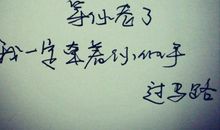 等你老了
我一定牵着你的手
过马路